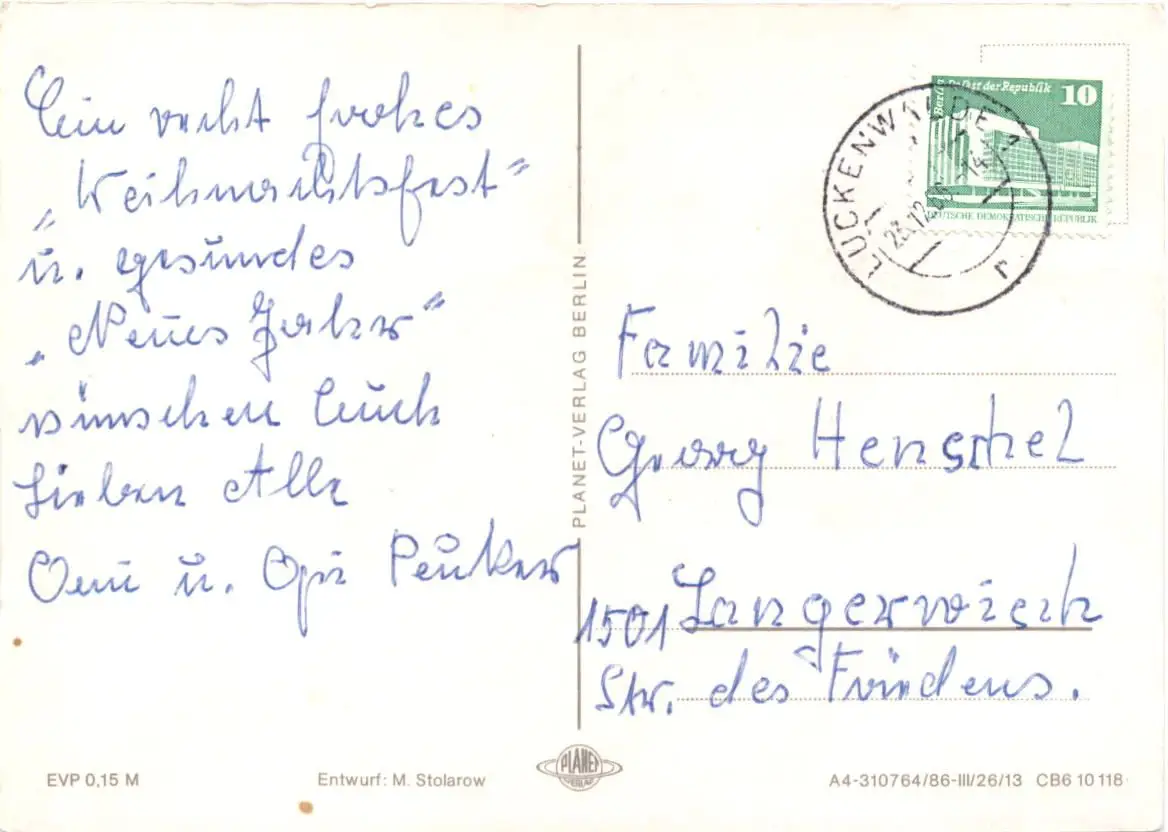 Ein recht frohes
„Weihnachtsfest"
u. gesundes
„Neues Jahr"
wünschen Euch
Lieben Alle
Omi u. Opi Peuker
PLANET-VERLAG BERLIN
Berlin Palast der Republik 10
DEUTSCHE DEMOKRATISCHE REPUBLIK
LUCKENWALDE 1
23.12.86-14
r
Familie
Georg Henschel
1501 Langerwisch
Str. des Friedens.
EVP 0,15 M
Entwurf: M. Stolarow
PLANET
VERLAG
A4-310764/86-III/26/13 CB6 10 118